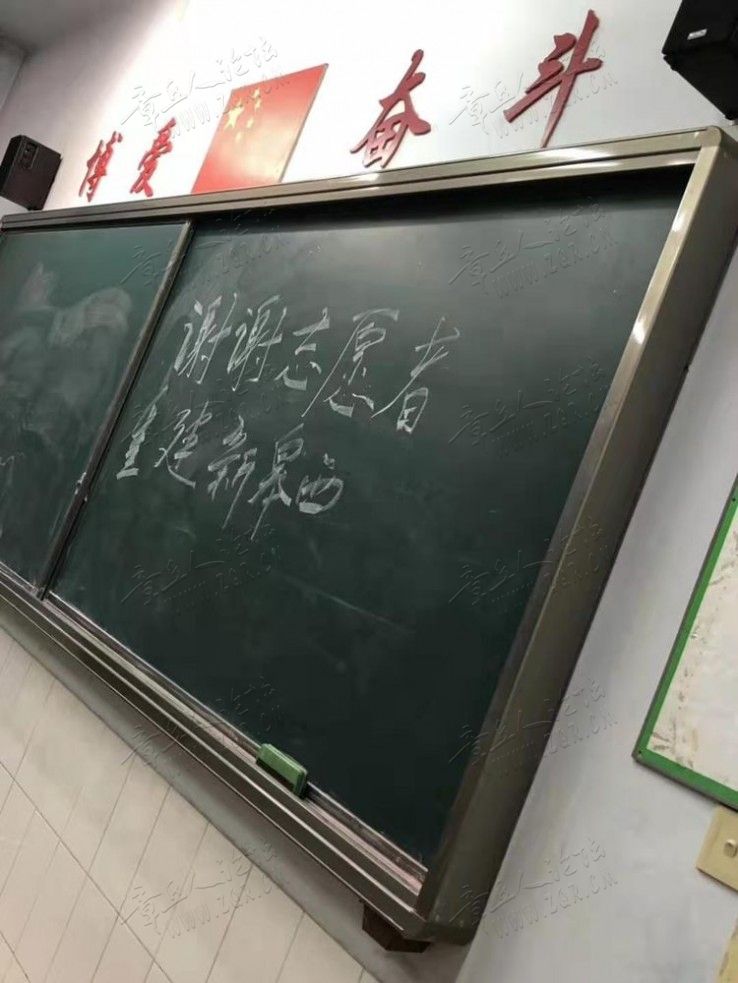 博爱 奋斗
谢谢志愿者
重建新皋西
章丘人论坛
WWW.ZQR.CN